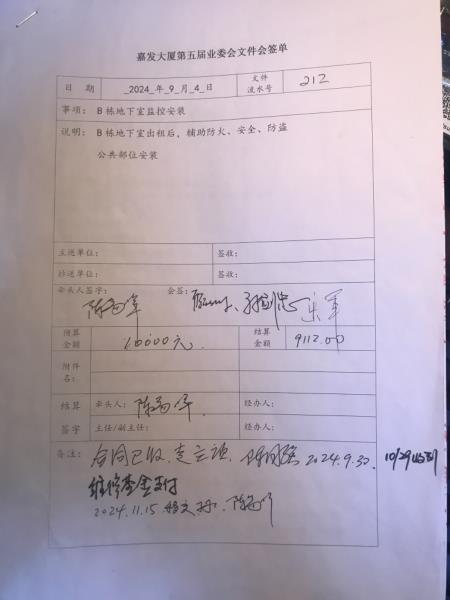 嘉发大厦第五届业委会文件会签单
日 期 2024 年 9 月 4 日 文件流水号 212
事项: B 栋地下室监控安装
说明: B 栋地下室出租后,辅助防火、安全、防盗
公共部位安装
主送单位: 签收:
抄送单位: 签收:
牵头人签字: 会签:
预算金额 10000元. 结算金额 9112.00
附件名:
结算 牵头人: 经办人:
签字 主任/副主任: 经办人:
备注: 合同已收. 2024.9.30. 10/29收到
维修基金支付
2024.11.15